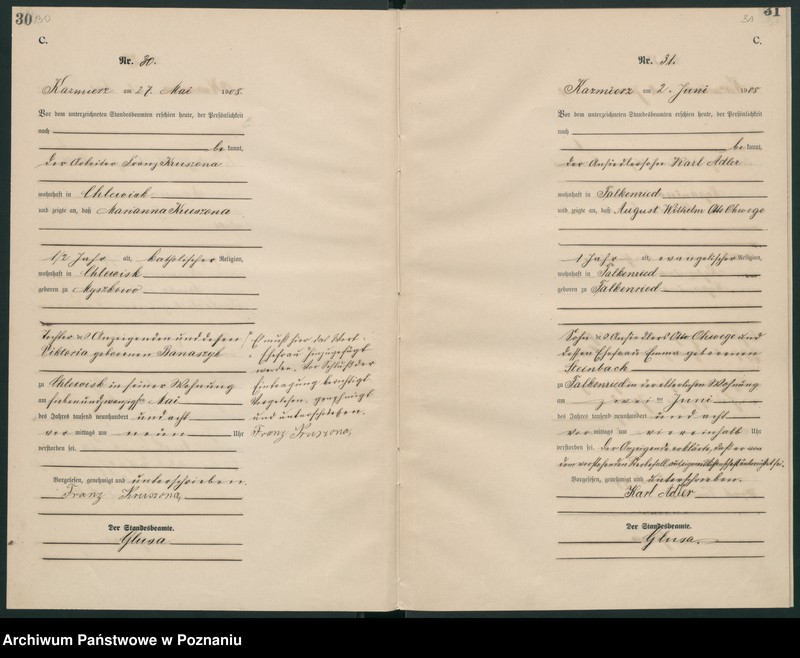 30
C.
Nr. 30.
Kazmierz am 27. Mai 1908
Vor dem unterzeichneten Standesbeamten erschien heute, der Persönlichkeit
nach
be kannt,
der Arbeiter Franz Kruszona
wohnhaft in Chlewisk
und zeigte an, daß Marianna Kruszona
1/2 Jahr alt, katholischer Religion,
wohnhaft in Chlewisk
geboren zu Myszkowo
Tochter des Anzeigenden und dessen
Viktoria geborenen Banaszyk
zu Chlewisk in seiner Wohnung
am siebenundzwanzigsten Mai
des Jahres tausend neunhundert und acht
vor mittags um neun Uhr
verstorben sei.
Es muß hier das Wort
Ehefrau hinzugefügt
werden. Vor Schluß der
Eintragung berichtigt
Vorgelesen, genehmigt
und unterschrieben.
Franz Kruszona,
Vorgelesen, genehmigt und unterschrieben.
Franz Kruszona,
Der Standesbeamte.
Glusa
31
31
C.
Nr. 31.
Kazmierz am 2. Juni 1908
Vor dem unterzeichneten Standesbeamten erschien heute, der Persönlichkeit
nach
be kannt,
der Ansiedlersohn Karl Adler
wohnhaft in Falkenried
und zeigte an, daß August Wilhelm Otto
1 Jahr alt, evangelischer Religion,
wohnhaft in Falkenried
geboren zu Falkenried
Sohn des Ansiedlers Otto und
dessen Ehefrau Emma geborenen
Steinbach
zu Falkenried in der elterlichen Wohnung
am zwei ten Juni
des Jahres tausend neunhundert und acht
vor mittags um viereinhalb Uhr
verstorben sei. Der Anzeigende erklärte, daß er von
dem vorstehenden Sterbefall aus eigener Wissenschaft unterrichtet sei.
Vorgelesen, genehmigt und unterschrieben.
Karl Adler
Der Standesbeamte.
Glusa.
Archiwum Państwowe w Poznaniu